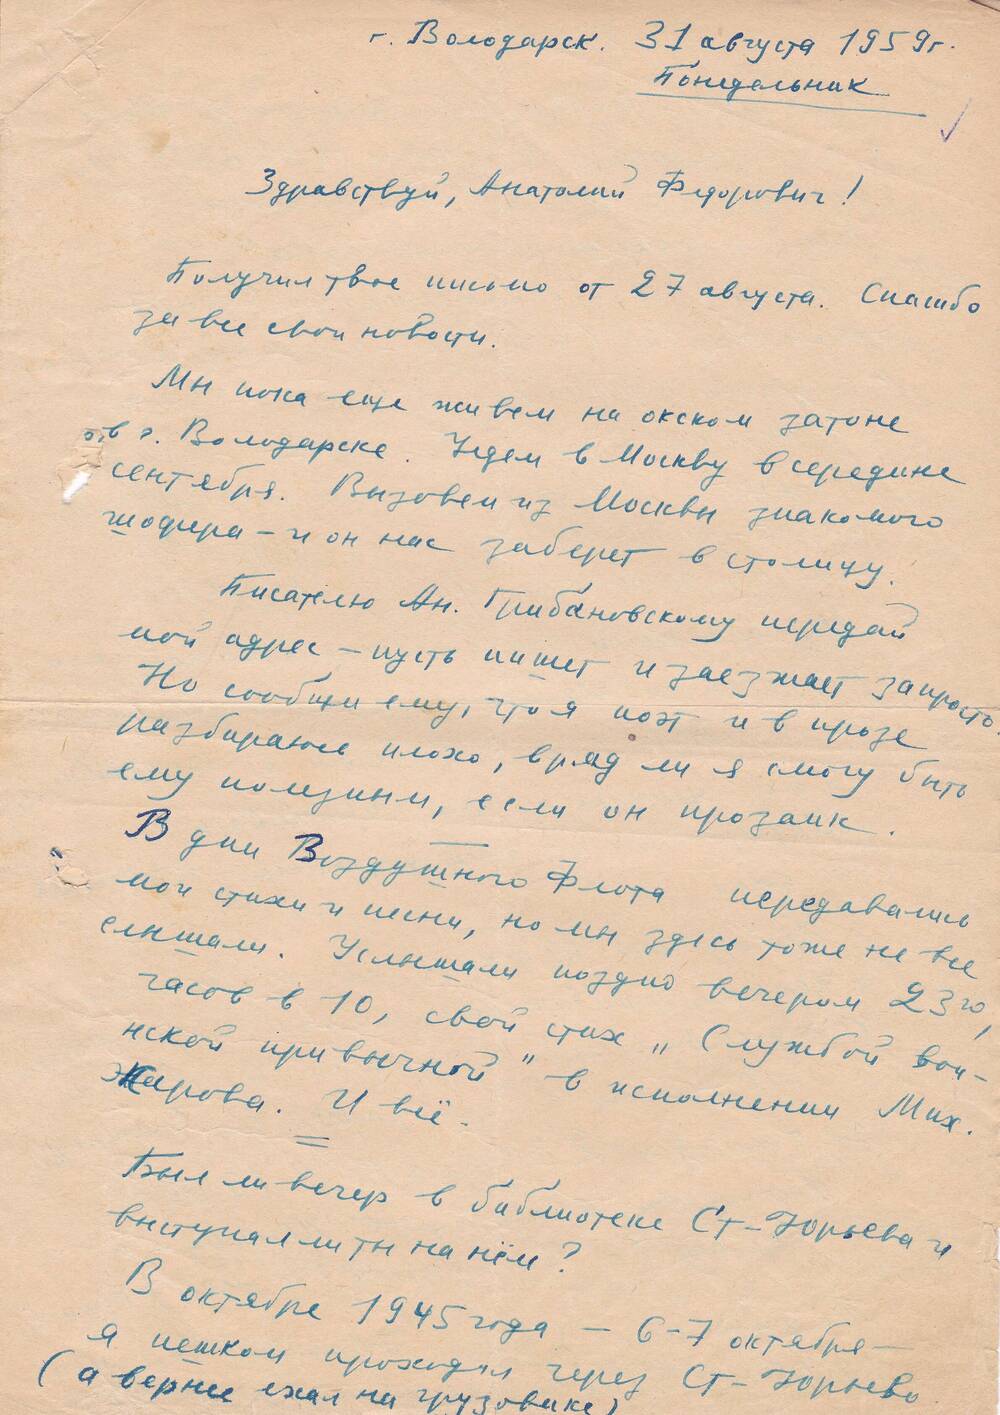 г. Володарск. 31 августа 1959г.
Понедельник
Здравствуй, Анатолий Федорович!
Получил твое письмо от 27 августа. Спасибо
за все свои новости.
Мы пока еще живем на окском затоне
в г. Володарске. Уедем в Москву в середине
сентября. Вызовем из Москвы знакомого
шофера – и он нас заберет в столицу.
Писателю Ан. Грибановскому передай
мой адрес – пусть пишет и заезжает запросто.
Но сообщи ему, что я поэт и в прозе
разбираюсь плохо, вряд ли я смогу быть
ему полезным, если он прозаик.
В дни Воздушного Флота передавались
мои стихи и песни, но мы здесь тоже не все
слышали. Услышали поздно вечером 23го,
часов в 10, свой стих „Службой вои-
нской привычной" в исполнении Мих.
Жарова. И всё.
Был ли вечер в библиотеке Ст-Юрьева и
выступал ли ты на нём?
В октябре 1945 года – 6-7 октября –
я пешком проходил через Ст-Юрьево
(а вернее ехал на грузовике)